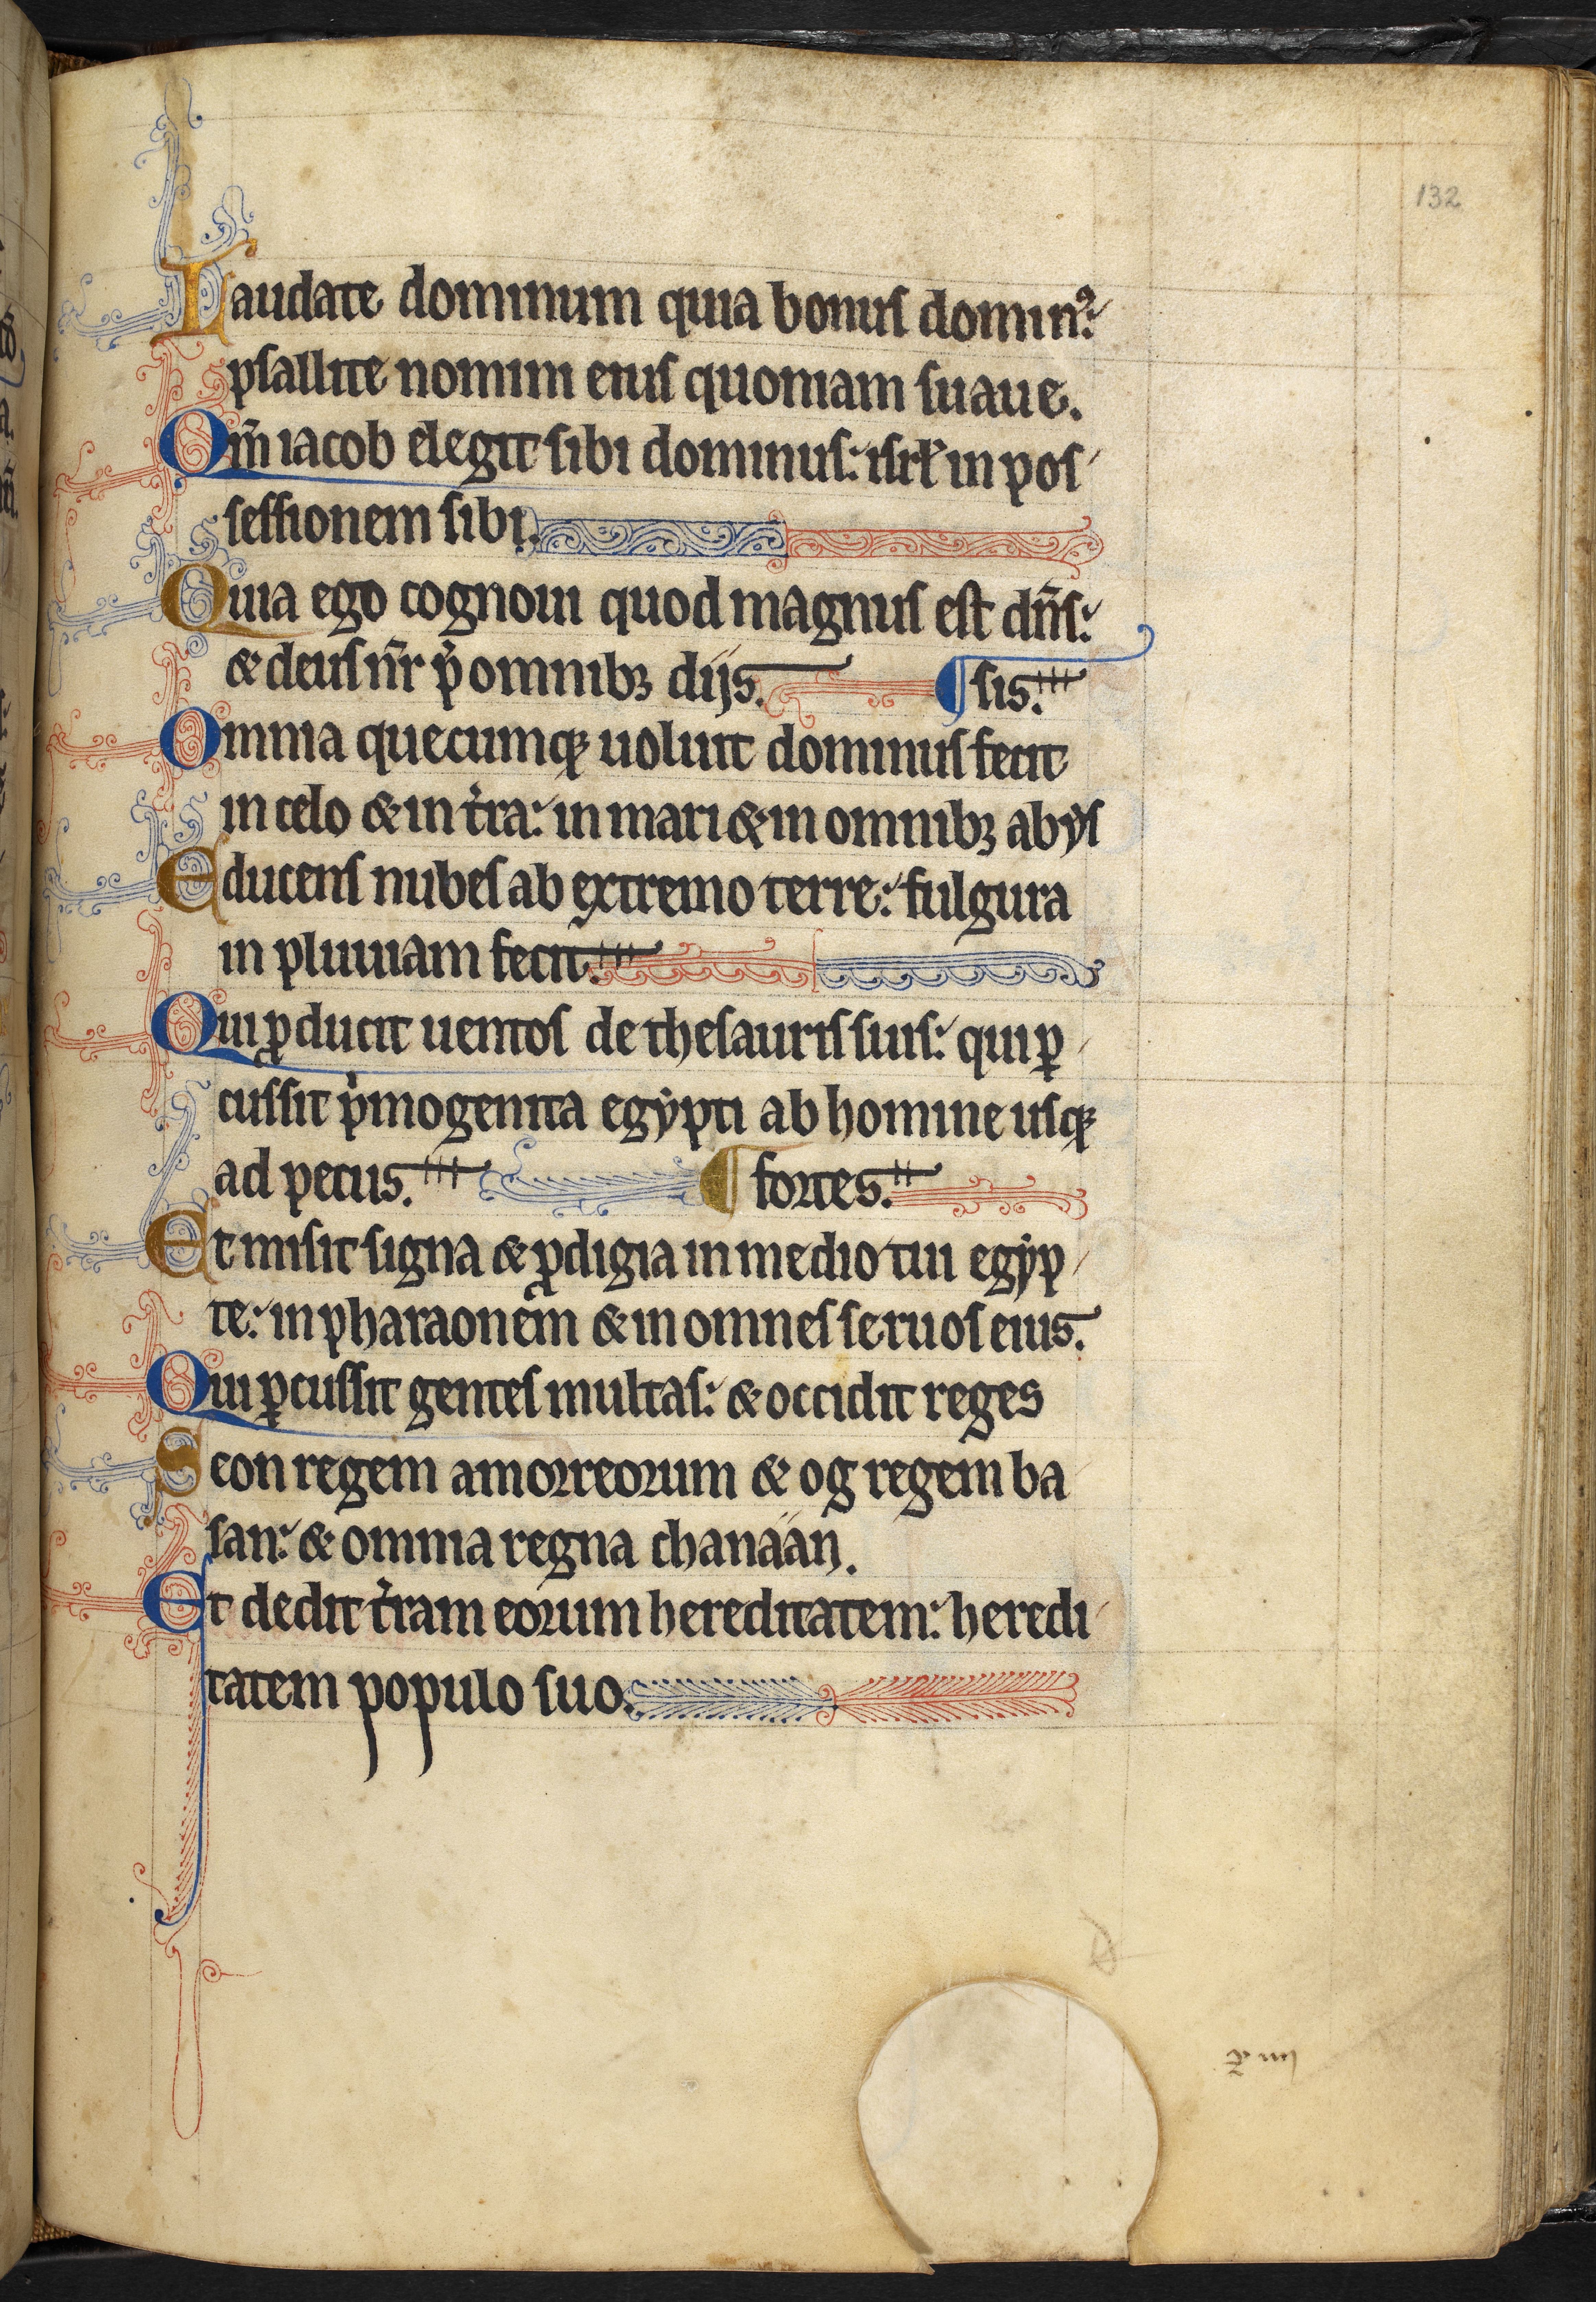 132
Laudate dominum quia bonus domin᷒:
psallite nomini eius quoniam suaue.
Qm̄ iacob elegit sibi dominus: isrl̄ in pos
sessionem sibi.
Quia ego cognoui quod magnus est dn̄s:
& deus nr̄ p̄ omnibꝫ dijs. ¶ sis.
Omnia quecumqꝫ uoluit dominus fecit
in celo & in t̉ra: in mari & in omnibꝫ abẏs
Educens nubes ab extremo terre: fulgura
in pluuiam fecit.
Qui ꝓducit uentos de thesauris suis: qui ꝑ
cussit pͥmogenita egẏpti ab homine usqꝫ
ad pecus. ¶ fortes.
Et misit signa & ꝓdigia in medio tui egẏp
te: in pharaonem & in omnes seruos eius.
Qui ꝑcussit gentes multas: & occidit reges
Seon regem amorreorum & og regem ba
san: & omnia regna chanáán.
Et dedit t̉ram eorum hereditatem: heredi
tatem populo suo.